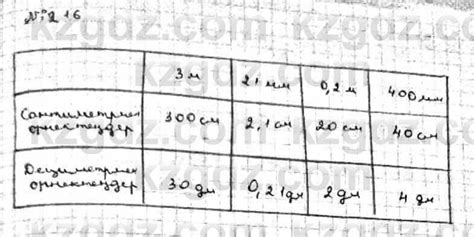 №216
3 м 21 мм 0,2 м 400 мм
Сантиметрмен 300 см 2,1 см 20 см 40 см
өрнектеңдер
Дециметрмен 30 дм 0,21 дм 2 дм 4 дм
өрнектеңдер
kzgdz.com